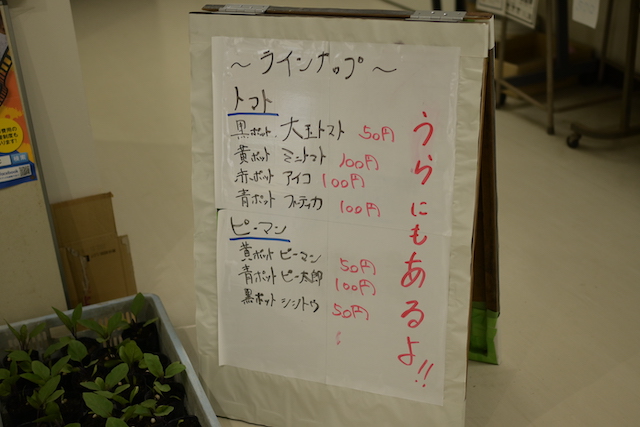 ～ラインナップ～
トマト
黒ポット 大玉トマト 50円
黄ポット ミニトマト 100円
赤ポット アイコ 100円
青ポット フルティカ 100円
ピーマン
黄ポット ピーマン 50円
青ポット ピー太郎 100円
黒ポット シシトウ 50円
うらにもあるよ!!